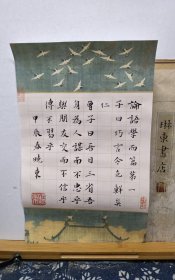 論語學而篇第一
子曰巧言令色鮮矣
仁
曾子曰吾日三省吾
身為人謀而不忠乎
與朋友交而不信乎
傳不習乎
甲辰春曉東
東書店